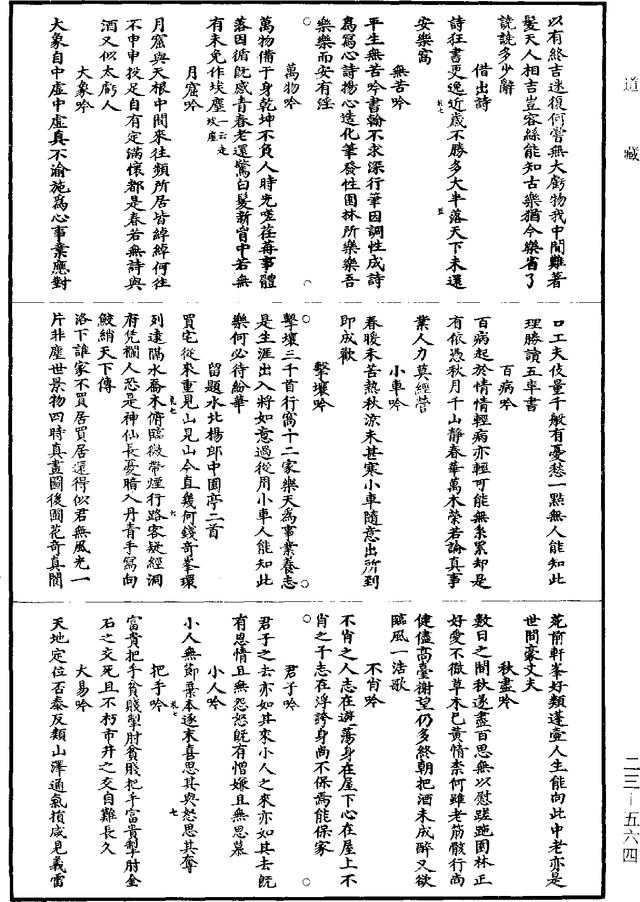 道藏
以有終吉迷復何嘗無大虧物我中間難著
髮天人相吉豈容絲能知古樂猶今樂省了
譊譊多少辭
借出詩
詩狂書更逸近歲不勝多大半落天下未還
安樂窩
無苦吟
平生無苦吟書翰不求深行筆因調性成詩
為寫心詩揚心造化筆發性園林所樂樂吾
樂樂而安有淫
萬物吟
萬物備于身乾坤不負人時光嗟荏苒事體
落因循既感青春老還驚白髮新胷中若無
有未免作埃塵一云走埃塵
月窟吟
月窟與天根中間來往頻所居皆綽綽何往
不申申投足自有定滿懷都是春若無詩與
酒又似太虧人
大象吟
大象自中虛中虛真不渝施為心事業應對
口工夫伎量千般有憂愁一點無人能知此
理勝讀五車書
百病吟
百病起於情情輕病亦輕可能無系累却是
有依憑秋月千山靜春華萬木榮若論真事
業人力莫經營
小車吟
春暖未苦熱秋涼未甚寒小車隨意出所到
即成歡
擊壤吟
擊壤三千首行窩十二家樂天為事業養志
是生涯出入將如意過從用小車人能知此
樂何必待紛華
留題水北楊郎中園亭二首
買宅從來重見山見山今直幾何錢奇峯環
列遶隅水喬木俯臨微帶煙行路客疑經洞
府凭欄人恐是神仙長憂暗入丹青手寫向
鮫綃天下傳
洛下誰家不買居買居還得似君無風光一
片非塵世景物四時真畫圖後圃花奇真閬
苑前軒峯好類蓬壺人生能向此中老亦是
世間豪丈夫
秋盡吟
數日之間秋遂盡百思無以慰蹉跎園林正
好愛不徹草木已黃情柰何雖老筋骸行尚
健儘高臺榭望仍多終朝把酒未成醉又欲
臨風一浩歌
不肖吟
不肖之人志在遊蕩身在屋下心在屋上不
肖之子志在浮誇身尚不保焉能保家
君子吟
君子之去亦如其來小人之來亦如其去既
有恩情且無怨怒既有憎嫌且無思慕
小人吟
小人無節棄本逐末喜思其與怒思其奪
把手吟
富貴把手貧賤掣肘貧賤把手富貴掣肘金
石之交死且不朽市井之交自難長久
大易吟
天地定位否泰反類山澤通氣損咸見義雷
二三—五六四